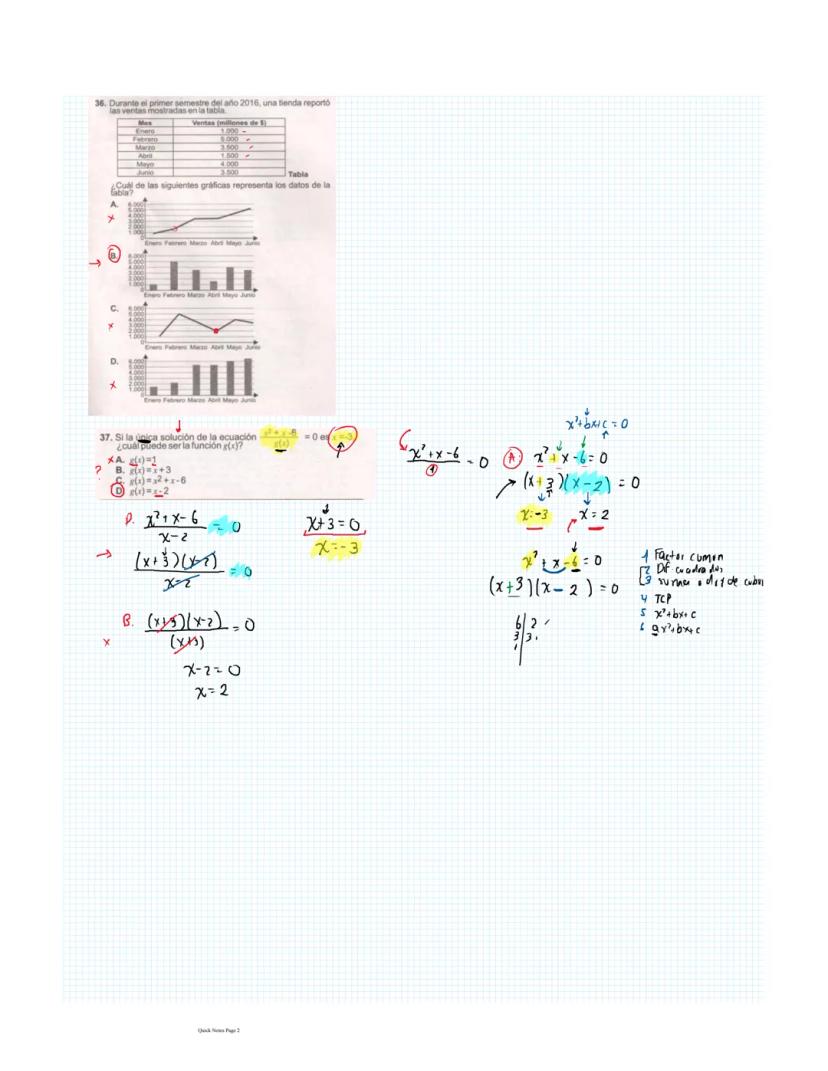 36. Durante el primer semestre del año 2016, una tienda reportó
las ventas mostradas en la tabla.
Mes Ventas (millones de $)
Enero 1.000
Febrero 5.000
Marzo 3.500
Abril 1.500
Mayo 4.000
Junio 3.500
Tabla
¿Cuál de las siguientes gráficas representa los datos de la
tabla?
A.
6.000
5.000
4.000
3.000
2.000
1.000
0
Enero Febrero Marzo Abril Mayo Junio
B.
6.000
5.000
4.000
3.000
2.000
1.000
0
Enero Febrero Marzo Abril Mayo Junio
C.
6.000
5.000
4.000
3.000
2.000
1.000
0
Enero Febrero Marzo Abril Mayo Junio
D.
6.000
5.000
4.000
3.000
2.000
1.000
0
Enero Febrero Marzo Abril Mayo Junio
37. Si la única solución de la ecuación x² + x -6 / g(x) = 0 es x=-3
¿cuál puede ser la función g(x)?
x A. g(x)=1
? B. g(x)=x+3
C. g(x)=x²+x-6
D g(x)=x-2
D. x²+x-6 / x-2 = 0
(x+3)(x-2) / x-2 = 0
x+3=0
x=-3
B. (x+3)(x-2) / (x+3) = 0
x
x-2=0
x=2
x²+x-6 / 1 = 0
x²+bx+c=0
A. x²+x-6=0
(x+3)(x-2)=0
x=-3 x=2
x²+x-6=0
(x+3)(x-2)=0
6 2
3 3
1
1 Factor cumun
2 Dif cuadrados
3 suma o dif de cubos
4 TCP
5 x²+bx+c
6 ax²+bx+c
Quick Notes Page 2